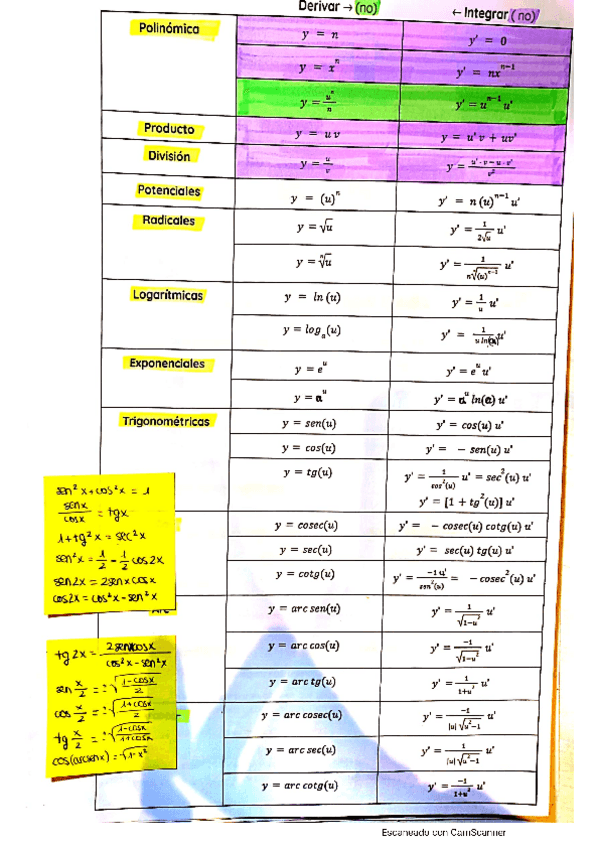 Derivar → (no)   ← Integrar (no)
Polinómica   y = n   y' = 0
y = xⁿ   y' = nxⁿ⁻¹
y = uⁿ/n   y' = uⁿ⁻¹ u'
Producto   y = u v   y' = u' v + uv'
División   y = u/v   y' = (u'·v − u·v')/v²
Potenciales   y = (u)ⁿ   y' = n (u)ⁿ⁻¹ u'
Radicales   y = √u   y' = 1/(2√u) u'
y = ⁿ√u   y' = 1/(n ⁿ√(u)ⁿ⁻¹) u'
Logarítmicas   y = ln (u)   y' = 1/u u'
y = logₐ(u)   y' = 1/(u ln(a)) u'
Exponenciales   y = eᵘ   y' = eᵘ u'
y = aᵘ   y' = aᵘ ln(a) u'
Trigonométricas   y = sen(u)   y' = cos(u) u'
y = cos(u)   y' = − sen(u) u'
y = tg(u)   y' = 1/cos²(u) u' = sec²(u) u'
y' = [1 + tg²(u)] u'
y = cosec(u)   y' = − cosec(u) cotg(u) u'
y = sec(u)   y' = sec(u) tg(u) u'
y = cotg(u)   y' = −1 u'/sen²(u) = − cosec²(u) u'
y = arc sen(u)   y' = 1/√(1−u²) u'
y = arc cos(u)   y' = −1/√(1−u²) u'
y = arc tg(u)   y' = 1/(1+u²) u'
y = arc cosec(u)   y' = −1/(|u| √(u²−1)) u'
y = arc sec(u)   y' = 1/(|u| √(u²−1)) u'
y = arc cotg(u)   y' = −1/(1+u²) u'
sen²x + cos²x = 1
senx/cosx = tgx
1 + tg²x = sec²x
sen²x = 1/2 − 1/2 cos2x
sen2x = 2senxcosx
cos2x = cos²x − sen²x
tg 2x = 2senxcosx/(cos²x − sen²x)
sen x/2 = √((1−cosx)/2)
cos x/2 = √((1+cosx)/2)
tg x/2 = √((1−cosx)/(1+cosx))
cos(arcsenx) = √(1−x²)
Escaneado con CamScanner